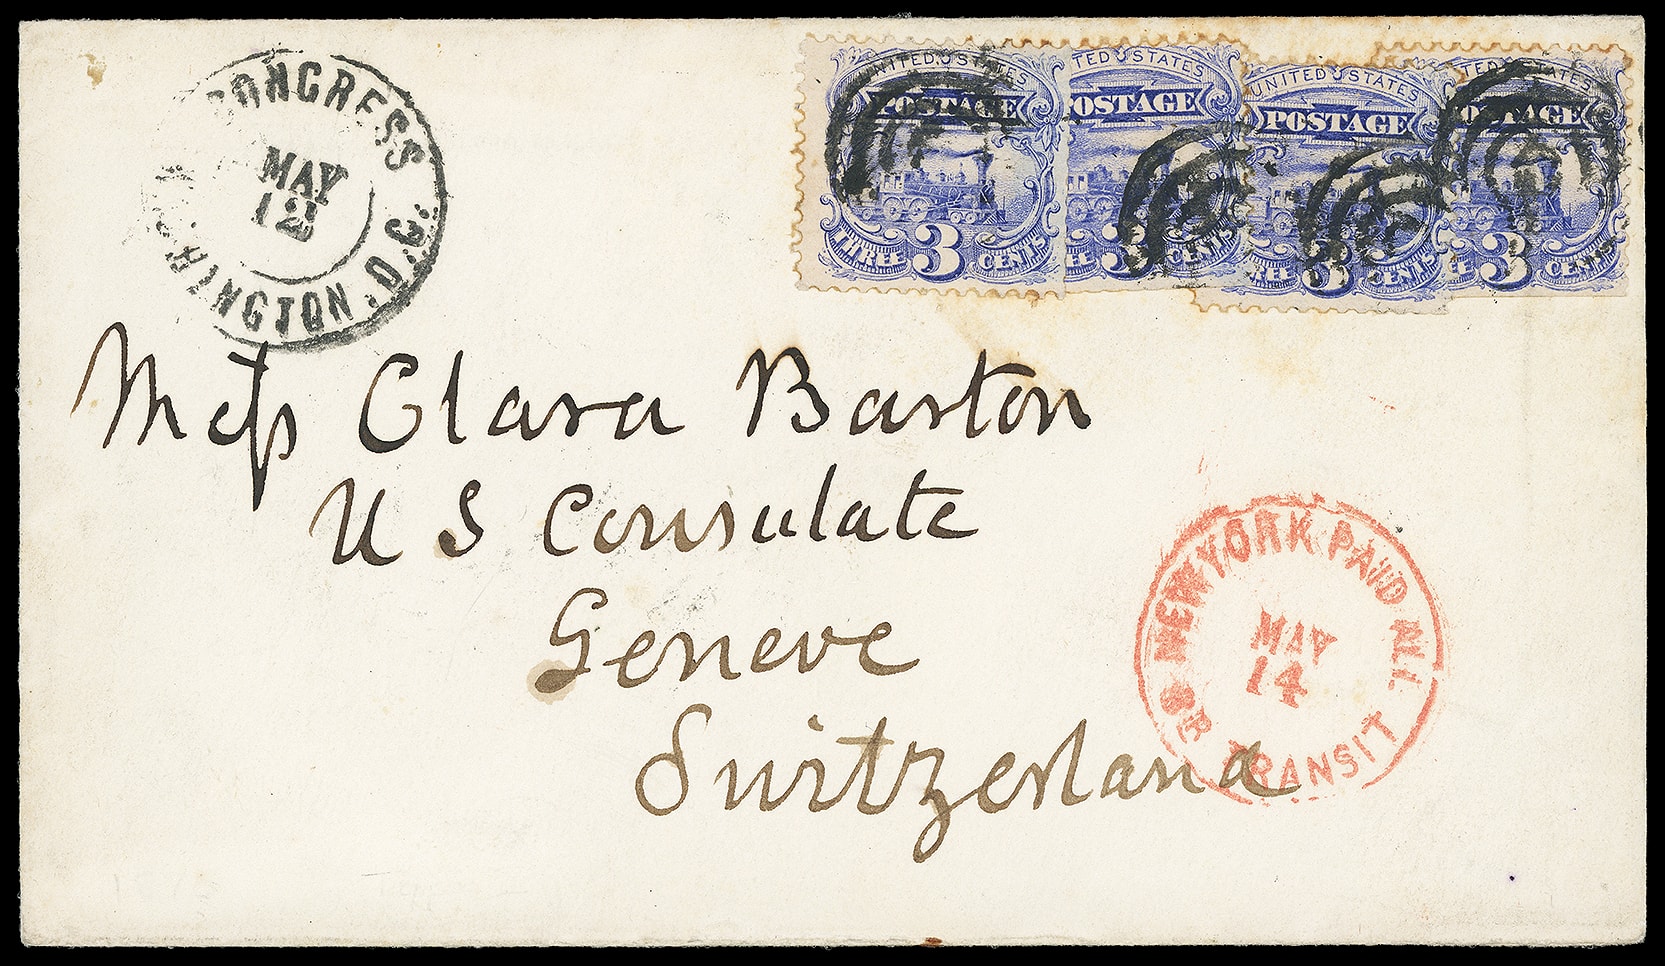 CONGRESS
MAY
12
HINGTON. D.C.
UNITED STATES
POSTAGE
THREE 3 CENTS
TED STATES
OSTAGE
REE 3 CENTS
UNITED STATES
POSTAGE
REE 3 CENTS
TED STATES
OSTAGE
EE 3 CENTS
Miſs Clara Barton
U S Consulate
Geneve
Switzerland
NEW YORK PAID ALL
MAY
14
BR TRANSIT